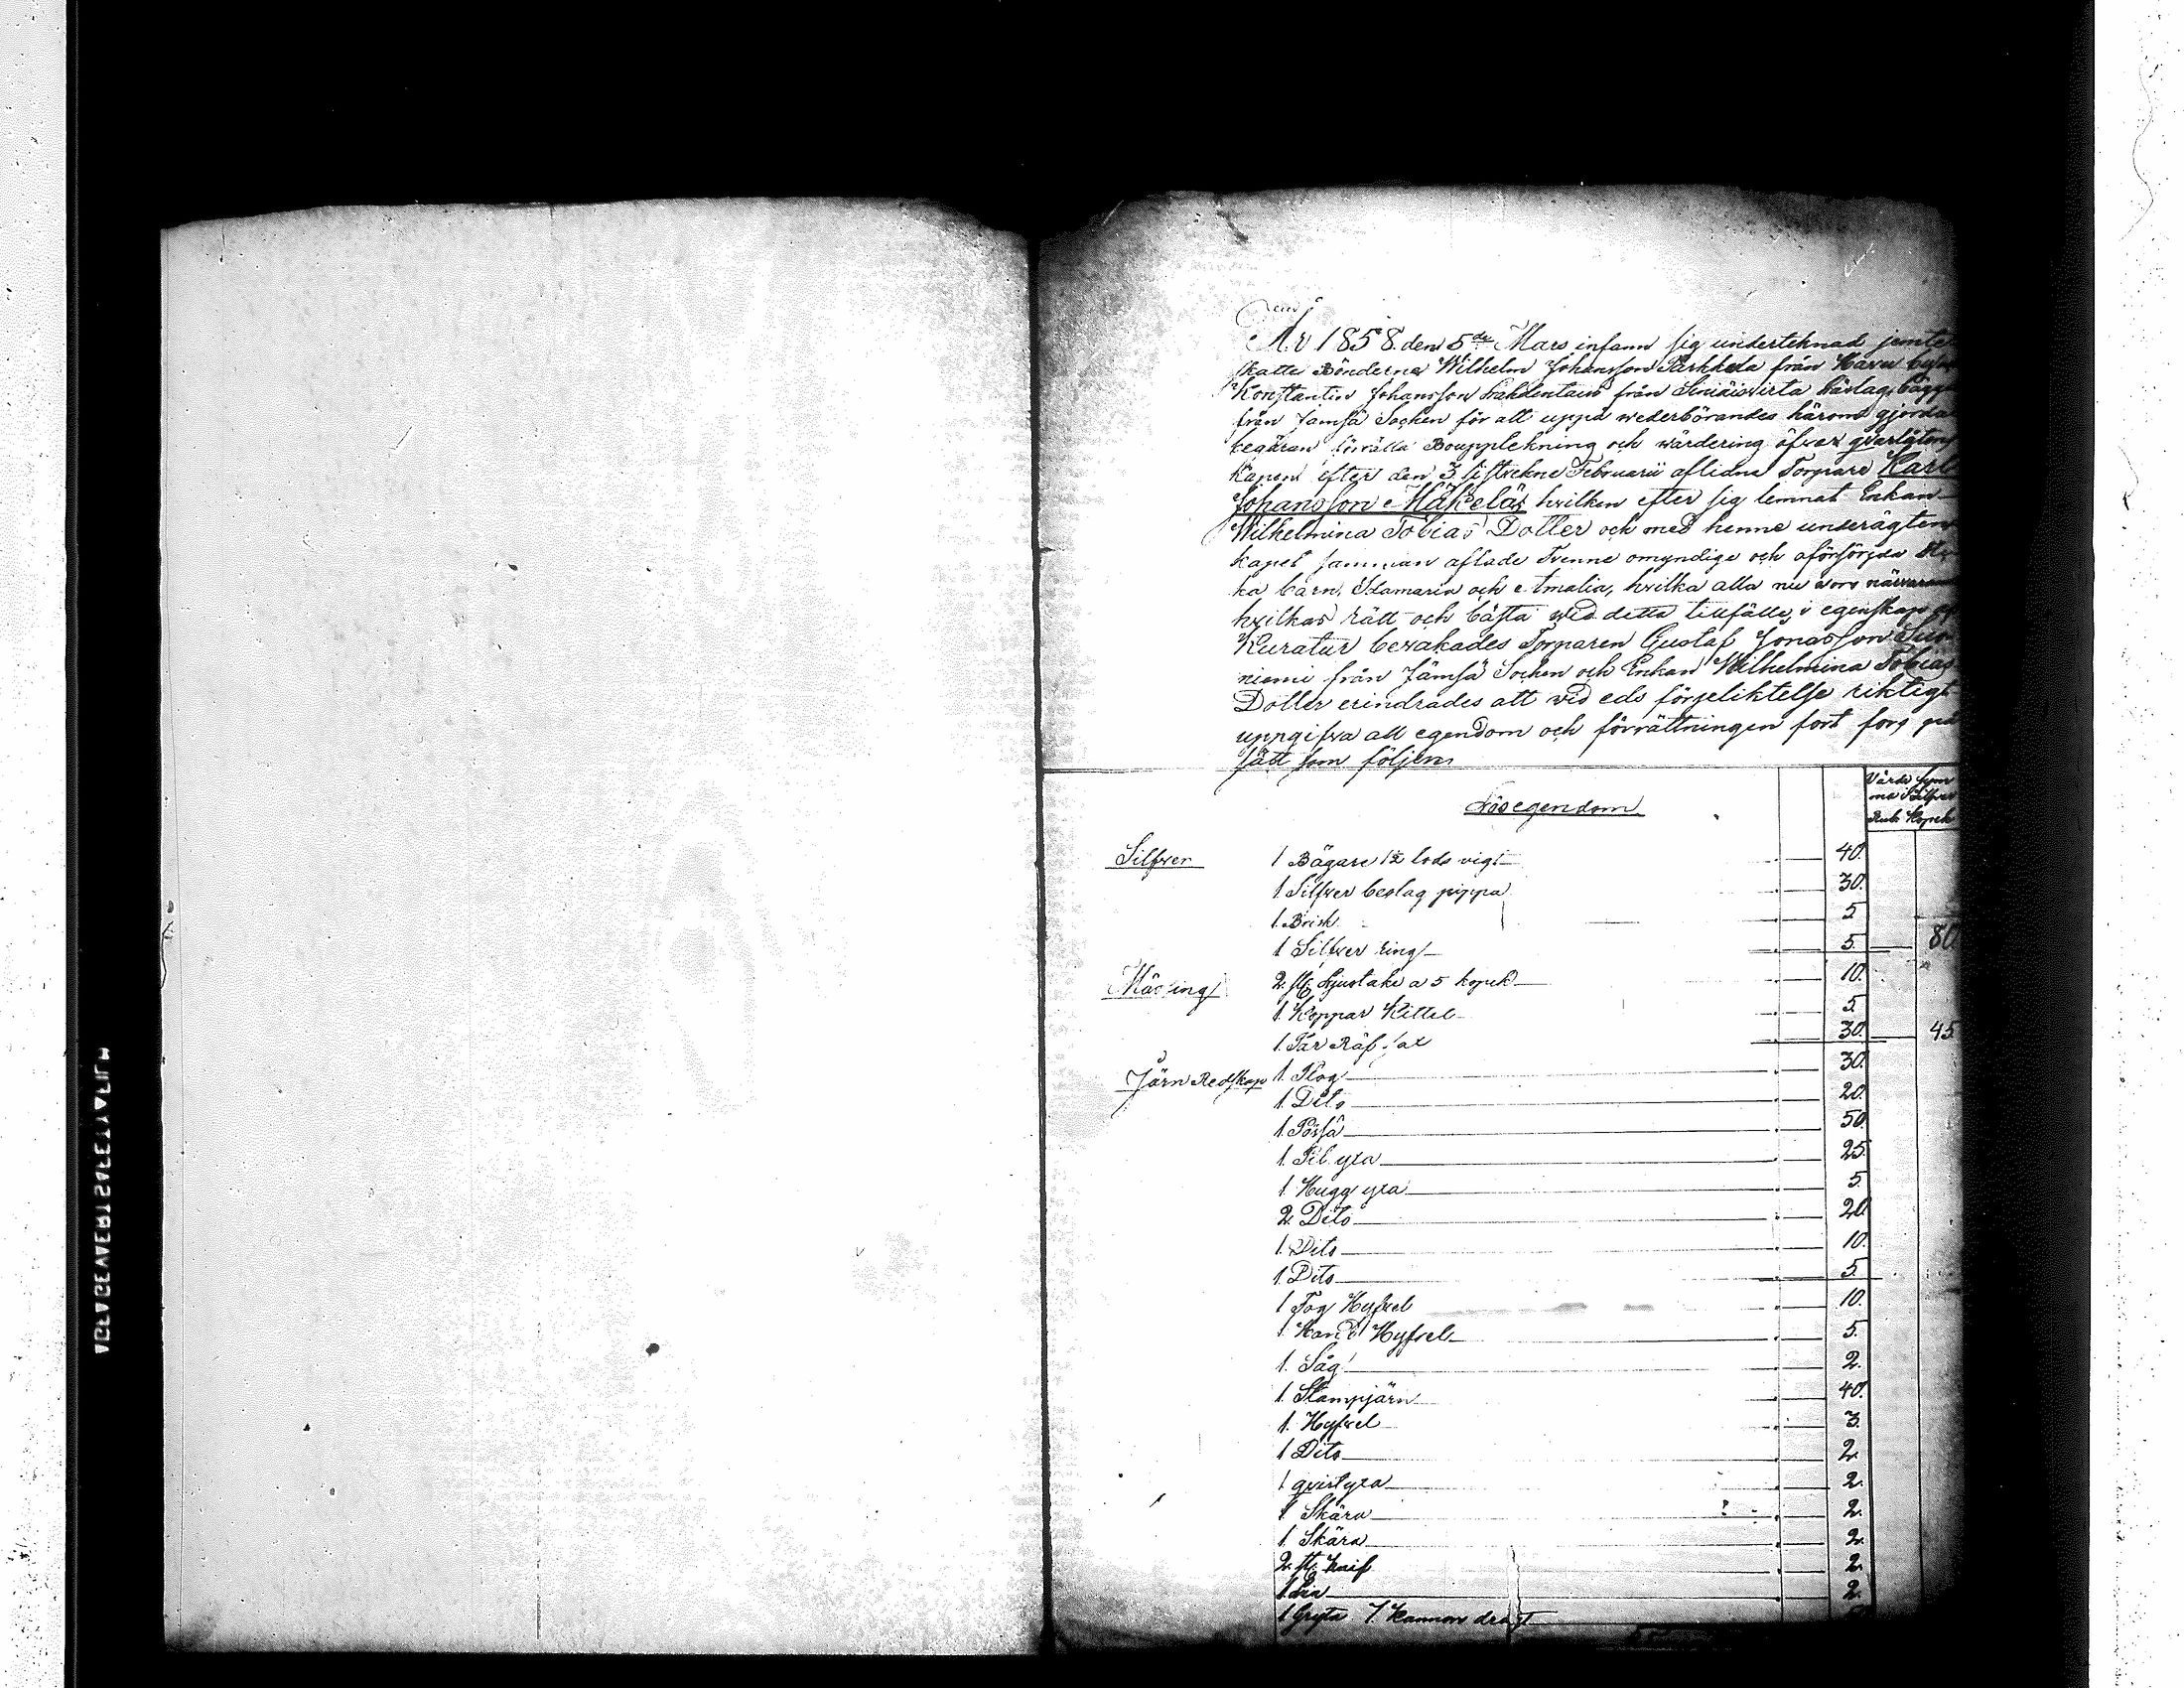 År 1858. den 5de Mars infann sig underteknad jemte
skatte Bönderne Wilhelm Johansson Parkkola från
Konstantin Johansson från bärlag, bägge
från Jämsä Sochen för att uppå wederbörandes härom gjorda
begäran förrätta Boupptekning och wärdering öfwer qvarlåten
kapen efter den 3 sistvekne Februarii aflidne Torpare Karl
Johansson Mäkelä, hvilken efter sig lemnat Enkan
Wilhelmina Tobias Dotter och med henne under ägten
kapet samman aflade Tvenne omyndige och oförsörjda
ka barn, Mamaria och Amalia, hvilka alla nu woro närvaran
hvilkas rätt och bästa wid detta tillfälle, i egenskap af
Kuratur bevakades Torparen Gustaf Jonasson Suo
niemi från Jämsä Sochen och Enkan Wilhelmina Tobias
Dotter erindrades att wid eds förpeliktelse riktigt
uppgifva all egendom och förrättningen fort fors på
sätt som följer
Värde Sum
ma Silfver
Rub Kopek
Lösegendom
Silfver 1 Bägare 12 lods vigt 40.
1 Silfver beslag pippa 30.
1. Brisk 5
1 Silfver ring 5. 80
Mässing 2. st. ljustake a 5 kopek 10.
1. Koppar Kittel 5.
1. Par Räf sax 30. 45
Järn Redskap 1. Plog 30.
1. Dito 20.
1. Pössä 50.
1. Pil yxa 25.
1. Hugg yxa 5.
2. Dito 20
1. Dito 10.
1. Dito 5.
1 Fog Hyfvel 10.
1. Hand Hyfvel 5.
1. Såg 2.
1. Stampjärn 40.
1. Hyfvel 3.
1 Dito 2.
1 qvistyxa 2.
1. Skära 2.
1. Skära 2.
2. st. knif 2.
1. Lia 2.
1 Gryta 7. Kannon dragt